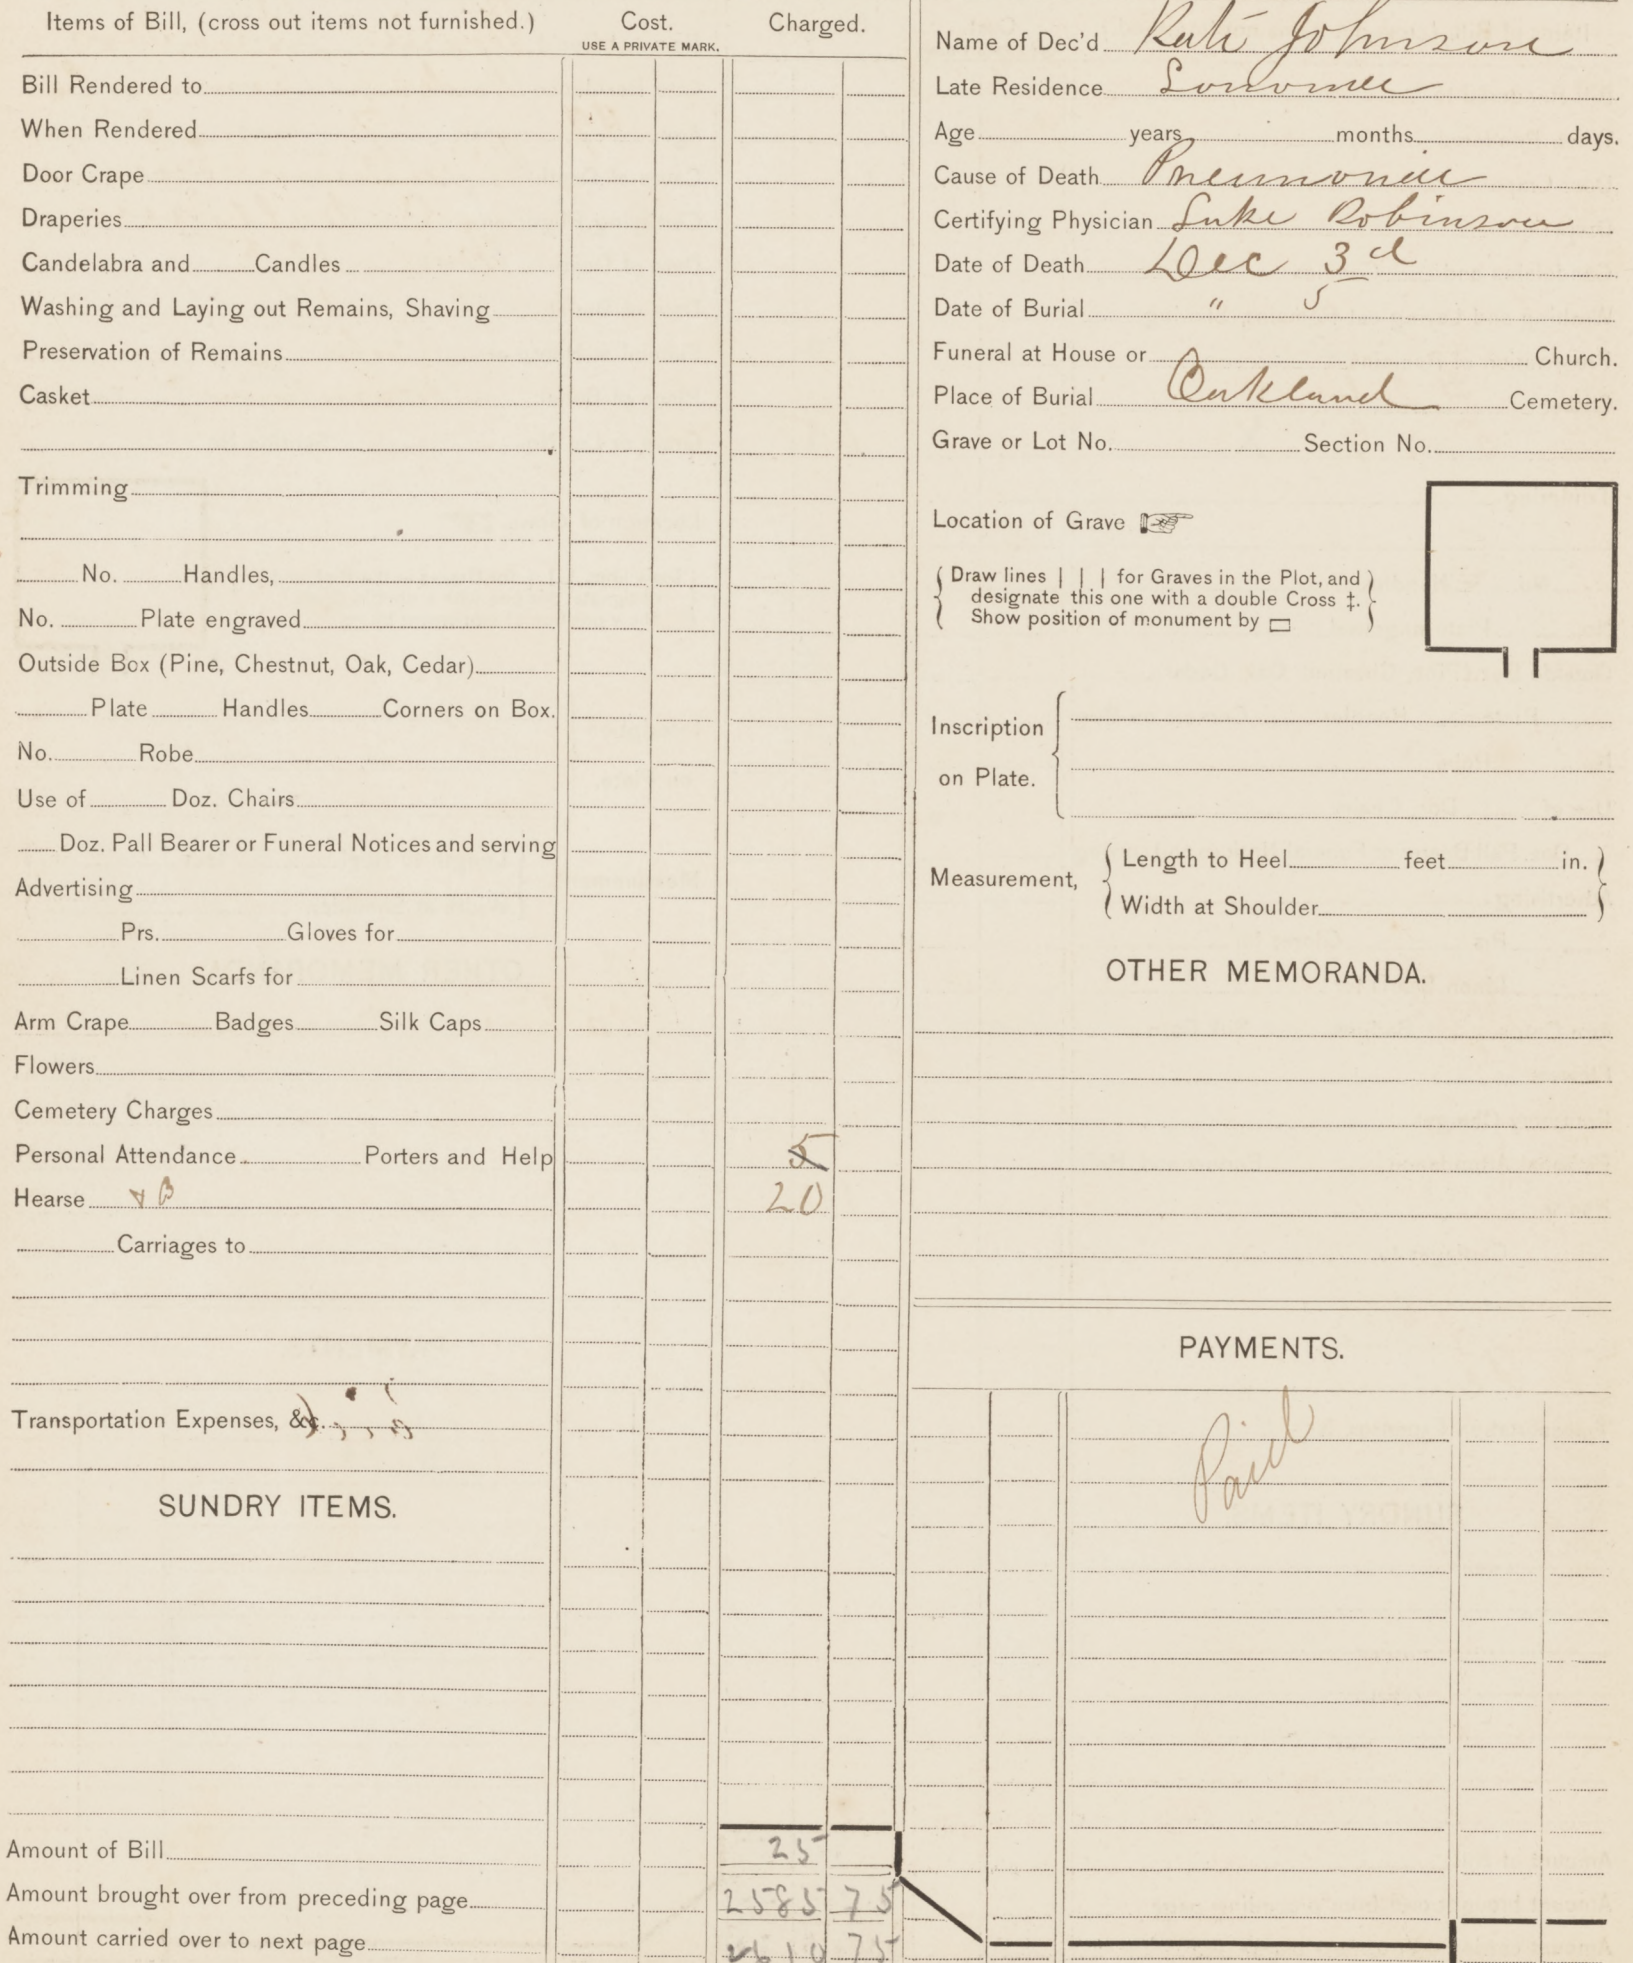 Items of Bill, (cross out items not furnished.) Cost. Charged.
USE A PRIVATE MARK.
Bill Rendered to
When Rendered
Door Crape
Draperies
Candelabra and Candles
Washing and Laying out Remains, Shaving
Preservation of Remains
Casket
Trimming
No. Handles,
No. Plate engraved
Outside Box (Pine, Chestnut, Oak, Cedar)
Plate Handles Corners on Box.
No. Robe
Use of Doz. Chairs
Doz. Pall Bearer or Funeral Notices and serving
Advertising
Prs. Gloves for
Linen Scarfs for
Arm Crape Badges Silk Caps
Flowers
Cemetery Charges
Personal Attendance Porters and Help 5
Hearse & B 20
Carriages to
Transportation Expenses, &c.
SUNDRY ITEMS.
Amount of Bill 25
Amount brought over from preceding page 2585 75
Amount carried over to next page 2610 75
Name of Dec'd Kate Johnson
Late Residence Sonoma
Age years months days.
Cause of Death Pneumonia
Certifying Physician Luke Robinson
Date of Death Dec 3d
Date of Burial " 5
Funeral at House or Church.
Place of Burial Oakland Cemetery.
Grave or Lot No. Section No.
Location of Grave
Draw lines | | | for Graves in the Plot, and
designate this one with a double Cross ‡.
Show position of monument by ▭
Inscription
on Plate.
Measurement, Length to Heel feet in.
Width at Shoulder
OTHER MEMORANDA.
PAYMENTS.
Paid